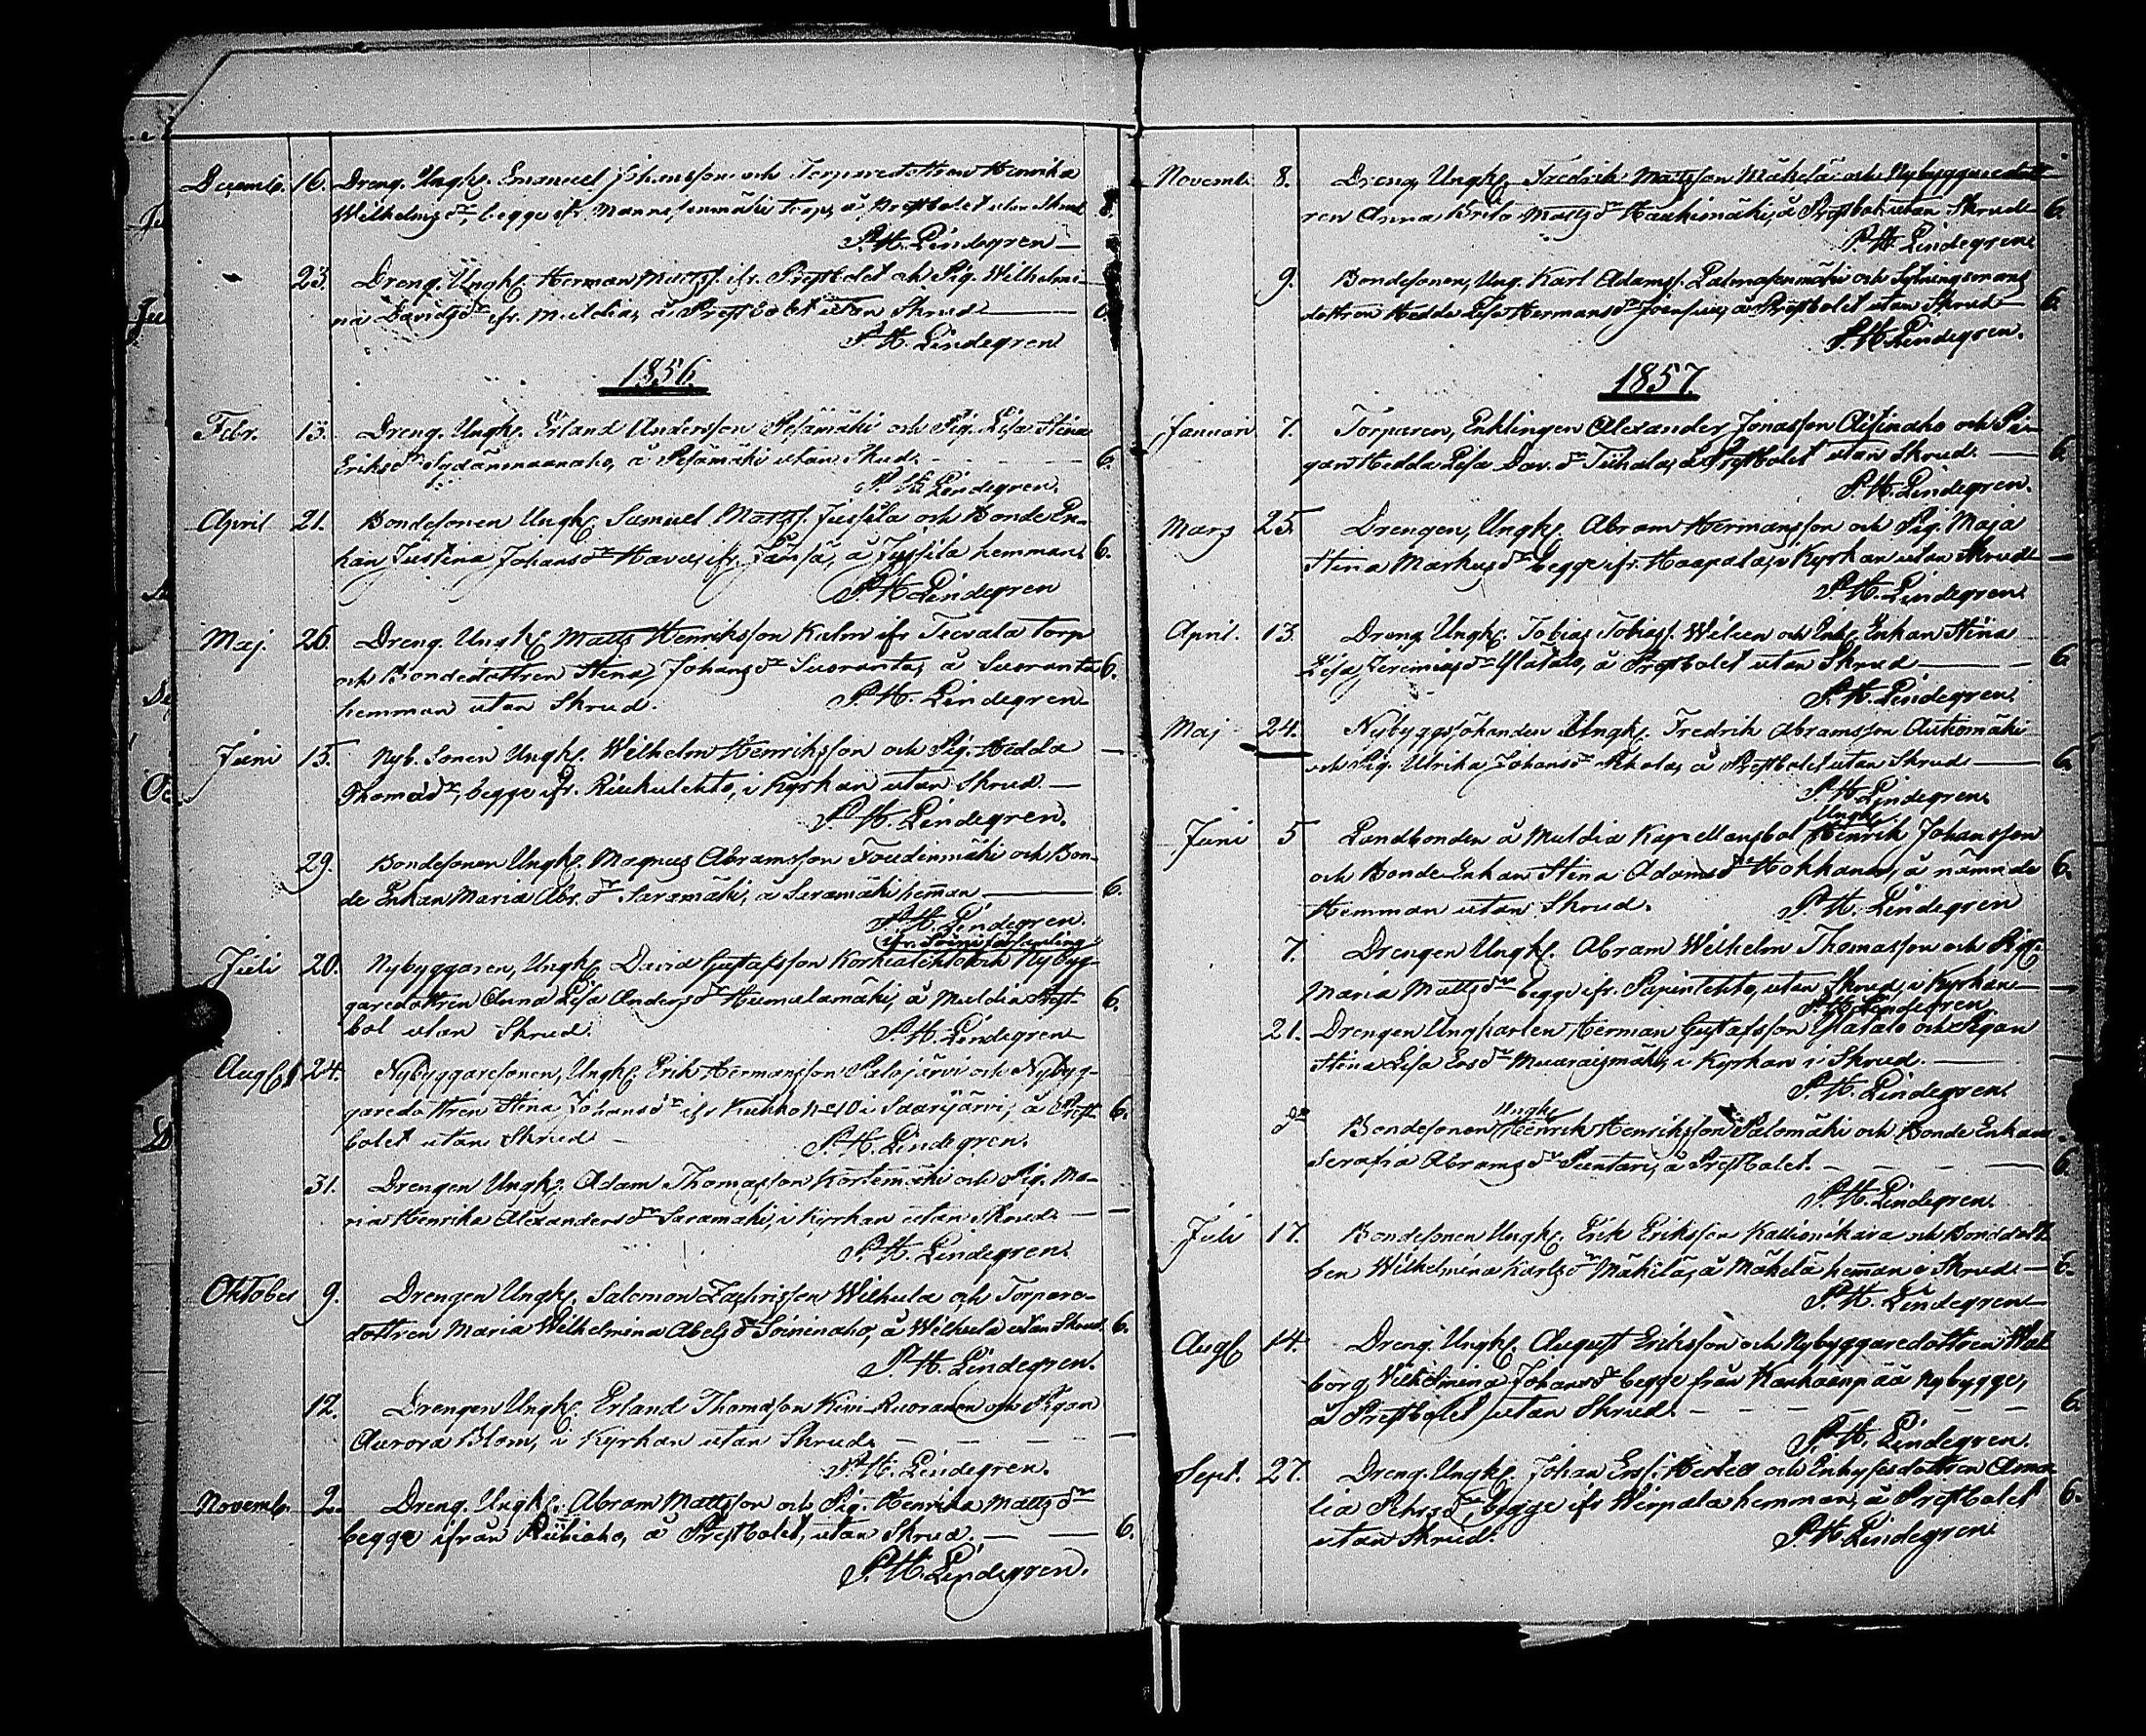 Decemb. 16. Dreng. Ungk. Emanuel Johansson och Torparedottren Henrika
Wilhelmsdr, begge ifr. Mannisenmäki torp, å Prestbolet utan Skrud 8.
P. H. Lindegren
23. Dreng. Ungk. Herman Mattss. ifr. Prestbolet och Pig. Wilhelmi-
na Davidsdr ifr. Muldia, å Prestbolet utan Skrud 6.
P. H. Lindegren
1856.
Febr. 13. Dreng. Ungk. Erland Andersson Pesämäki och Pig. Lisa Stina
Eriksdr Sydänmaanaho, å Pesämäki utan Skud. 6.
P. H. Lindegren.
April 21. Bondesonen Ungk. Samuel Matts. Jussila och Bonde En-
kan Justina Johansdr Havu, ifr. Jämsä, å Jussila hemman. 6.
P. H. Lindegren
Maj. 26. Dreng. Ungk. Matts Henriksson Kalm ifr Teerala torp
och Bondedottren Stina Johansdr Suoranta, å Suoranta 6.
hemman utan Skrud. P. H. Lindegren
Juni 15. Nyb. Sonen Ungk. Wilhelm Henriksson och Pig. Hedda
Thomasdr, begge ifr. Riukulehto, i Kyrkan utan Skrud. —
P. H. Lindegren.
29. Bondesonen Ungk. Magnus Abramsson Foudinmäki och Bon-
de Enkan Maria Abr. dr Saramäki, å Saramäki hemman 6.
P. H. Lindegren.
ifr. Soini församling
Juli 20. Nybyggaren, Ungk. David Gustafsson Korkialehto och Nybyg-
garedottren Anna Lisa Andersdr Humalamäki, å Muldia Prest- 6.
bol utan Skrud. P. H. Lindegren
Aug. 24. Nybyggaresonen, Ungk. Erik Hermansson Palojärvi och Nybyg-
garedottren Stina Johansdr ifr Kukko N:o 10 i Saarijärvi, å Prest- 6.
bolet utan Skrud P. H. Lindegren.
31. Drengen Ungk. Adam Thomasson Kortemäki och Pig. Ma-
ria Henrika Alexandersdr Saramäki, i Kyrkan utan Skrud. —
P. H. Lindegren.
Oktober 9. Drengen Ungk. Salomon Zachrisson Wilhula och Torpare-
dottren Maria Wilhelmina Abelsdr Soininaho, å Wilhula utan Skrud. 6.
P. H. Lindegren.
12. Drengen Ungk. Erland Thomasson Kivi-Ruoranen och Pigan
Aurora Blom, i Kyrkan utan Skrud. —
P. H. Lindegren.
Novemb. 2. Dreng. Ungk. Abram Mattsson och Pig. Henrika Mattsdr
begge ifrån Riihiaho, å Prestbolet, utan Skrud. 6.
P. H. Lindegren.
Novemb. 8. Dreng. Ungk. Fredrik Mattsson Mäkelä och Nybyggaredott-
ren Anna Brita Mattsdr Haukimäki, å Prestbol. utan Skrud 6.
P. H. Lindegren.
9. Bondesonen, Ung. Karl Adamss. Palomasenmäki och Sytningsmans
dottren Hedda Lisa Hermansdr, å Prestbolet utan Skrud 6.
P. H. Lindegren.
1857.
Januari 7. Torparen, Enklingen Alexander Jonasson Aisinaho och Pi-
gan Hedda Lisa Dav. dr Tiihala, å Prestbolet utan Skrud. 6.
P. H. Lindegren.
Mars 25. Drengen, Ungk. Abram Hermansson och Pig. Maja
Stina Markusdr begge ifr. Haapala, i Kyrkan utan Skrud —
P. H. Lindegren.
April. 13. Dreng Ungk. Tobias Tobiass. Wileen och Enk. Enkan Stina
Lisa Jeremiasdr Ylätalo, å Prestbolet utan Skrud 6.
P. H. Lindegren.
Maj 24. Nybyggsåhanden Ungk. Fredrik Abramsson Autiomäki
och Pig. Ulrika Johansdr Pihola, å Prestbolet utan Skrud 6.
P. H. Lindegren.
Ungk.
Juni 5 Landbonden å Muldia Kapellansbol Henrik Johansson
och Bonde Enkan Stina Adamsdr Hokkanen, å nämnde 6.
Hemman utan Skrud. P. H. Lindegren
7. Drengen Ungk. Abram Wilhelm Thomasson och Pig.
Maria Mattsdr begge ifr. Papinlehto, utan Skrud, i Kyrkan —
P. H. Lindegren
21. Drengen Ungkarlen Herman Gustafsson Ylätalo och Pigan
Stina Lisa Ersdr Muuraismäki, i Kyrkan i Skrud. —
P. H. Lindegren.
Ungk.
do Bondesonen Henrik Henriksson Palomäki och Bonde Enkan
Serafia Abramsdr Puntari, å Prestbolet. 6.
P. H. Lindegren.
Juli 17. Bondesonen Ungk. Erik Eriksson Kallionikara och Bondedott-
ren Wilhelmina Karlsdr Mäkilä, å Mäkelä hemman i Skrud. 6.
P. H. Lindegren
Aug. 14. Dreng. Ungk. August Eriksson och Nybyggaredottren Wal-
borg Wilhelmina Johansdr begge från Kanhaanpää nybygge,
å Prestbolet utan Skrud. 6.
P. H. Lindegren.
Sept. 27. Dreng. Ungk. Johan Erss. Hertell och dottren Ama-
lia Pehrsdr, begge ifr Wirpala hemman, å Prestbolet 6.
utan Skrud. P. H. Lindegren